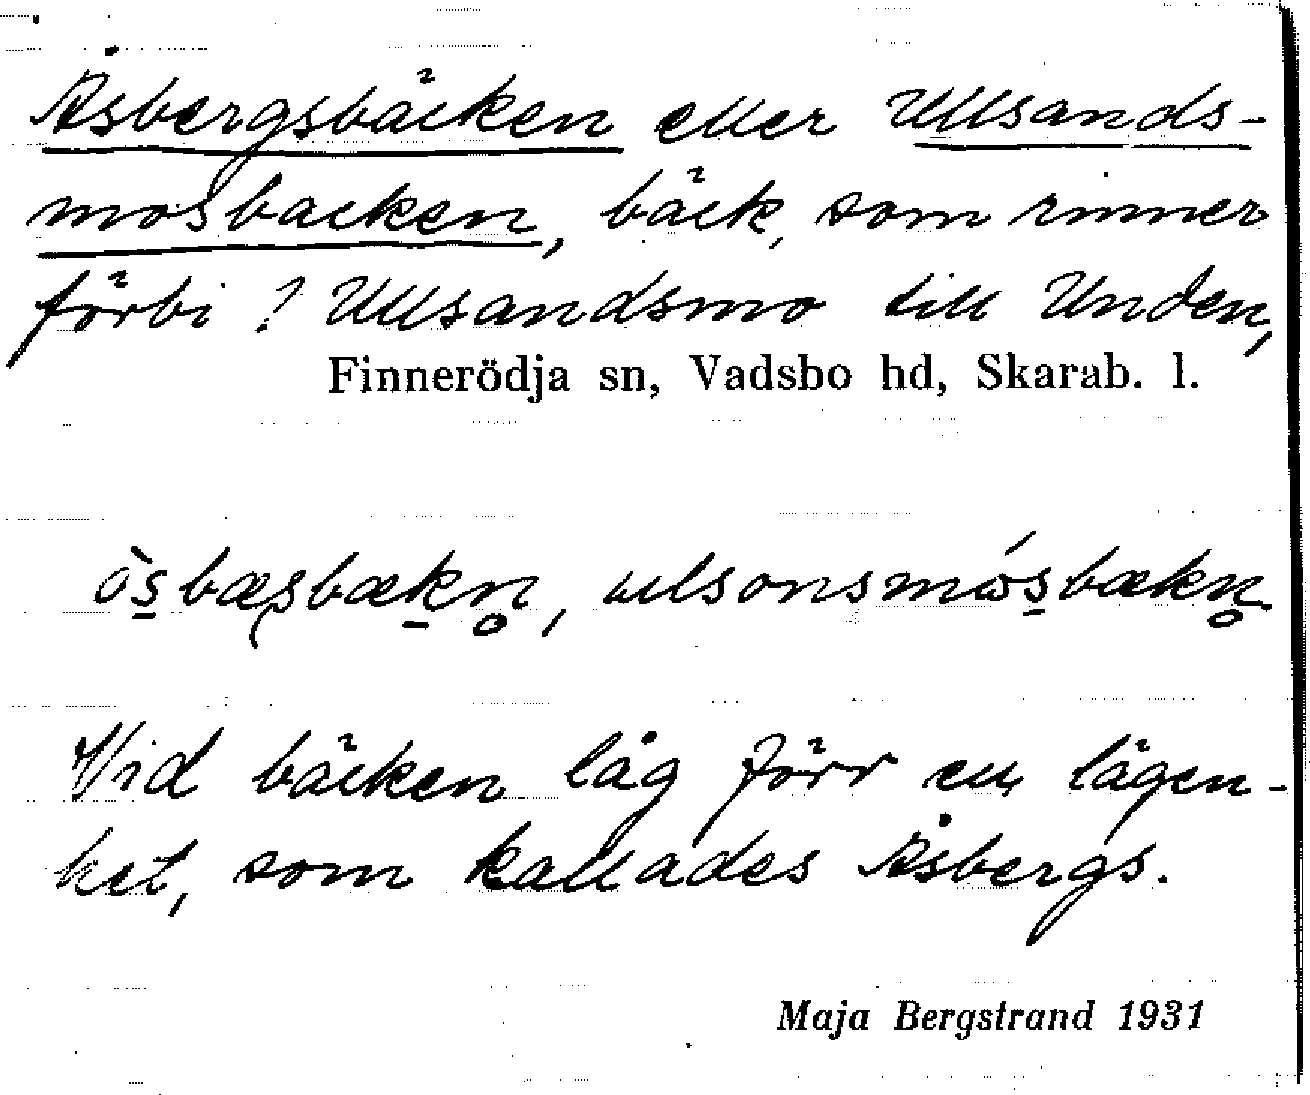 Åsbergsbäcken eller Ullsands-
mosbacken, bäck, som rinner
förbi ? Ullsandsmo till Unden,
Finnerödja sn, Vadsbo hd, Skarab. l.
òs̱bæʂbæḵn̥, ulsonsmós̱bækn̥
Vid bäcken låg förr en lägen-
het, som kallades Åsbergs.
Maja Bergstrand 1931